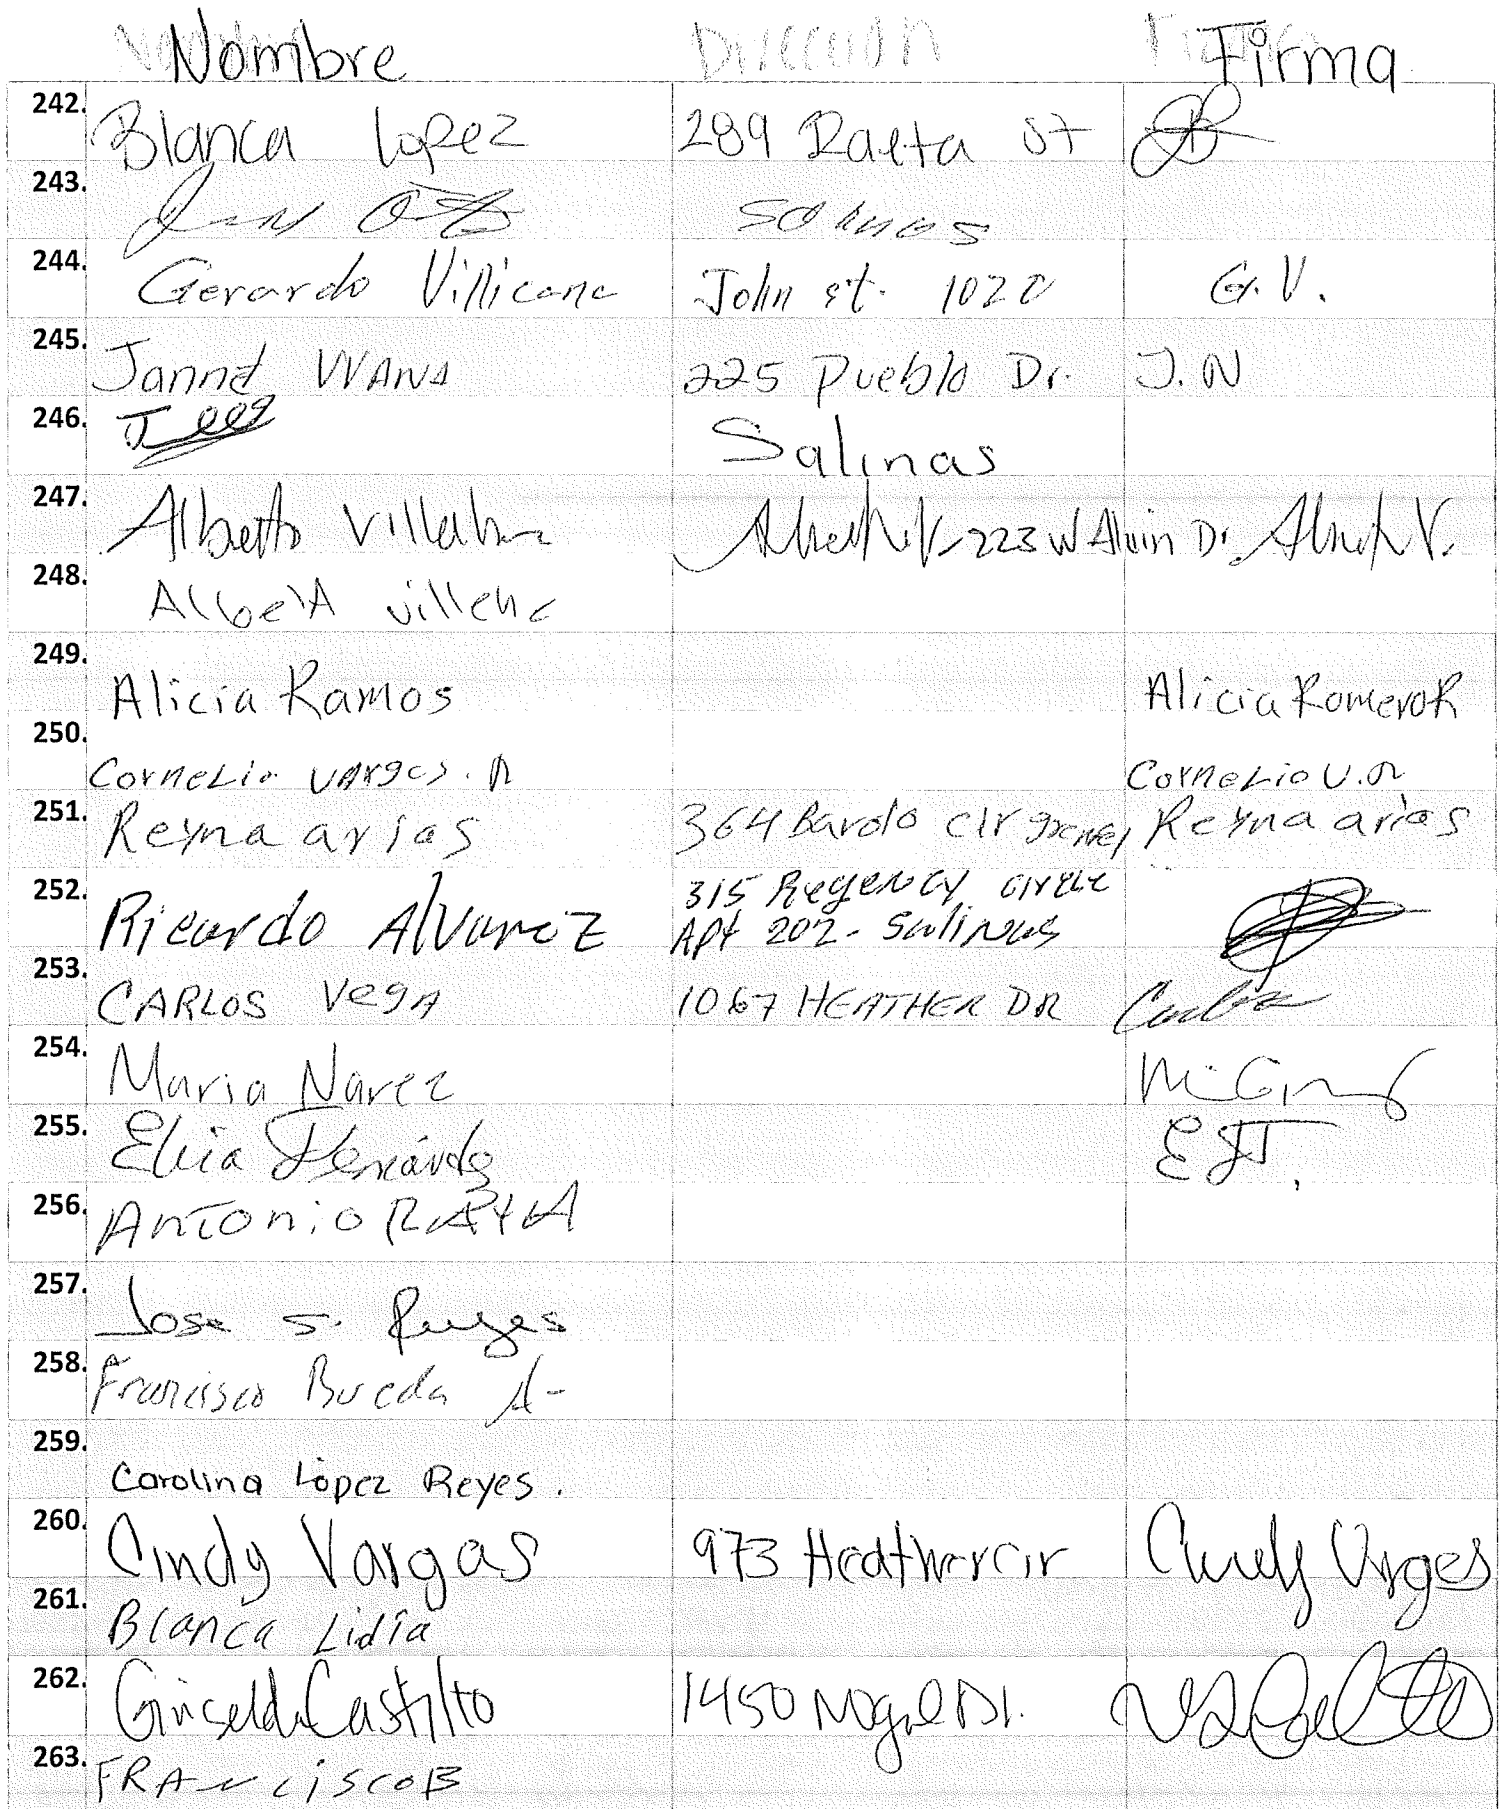 Nombre Dirección Firma
242. Blanca Lopez 289 St
243. Salinas
244. Gerardo Villicana John st. 1020 G. V.
245. 225 Pueblo Dr. J. N
246. Salinas
247. Alberto 223 W Alvin Dr.
248.
249. Alicia Ramos Alicia Romero R
250. Cornelio Vargas. Cornelio V.
251. Reyna arias 364 Bardo cir Reyna arias
315 Regency circle
252. Ricardo Alvarez Apt 202 - Salinas
253. CARLOS VegA 1067 HEATHER DR
254. Maria Narez
255. Elvia
256. Antonio RAYA
257. Jose S. Reyes
258. Francisco A-
259. Carolina López Reyes.
260. Cindy Vargas 973 Heather cir Cindy Vargas
261. Blanca Lidia
262. Griselda Castillo 1450
263. FRAnciscoB